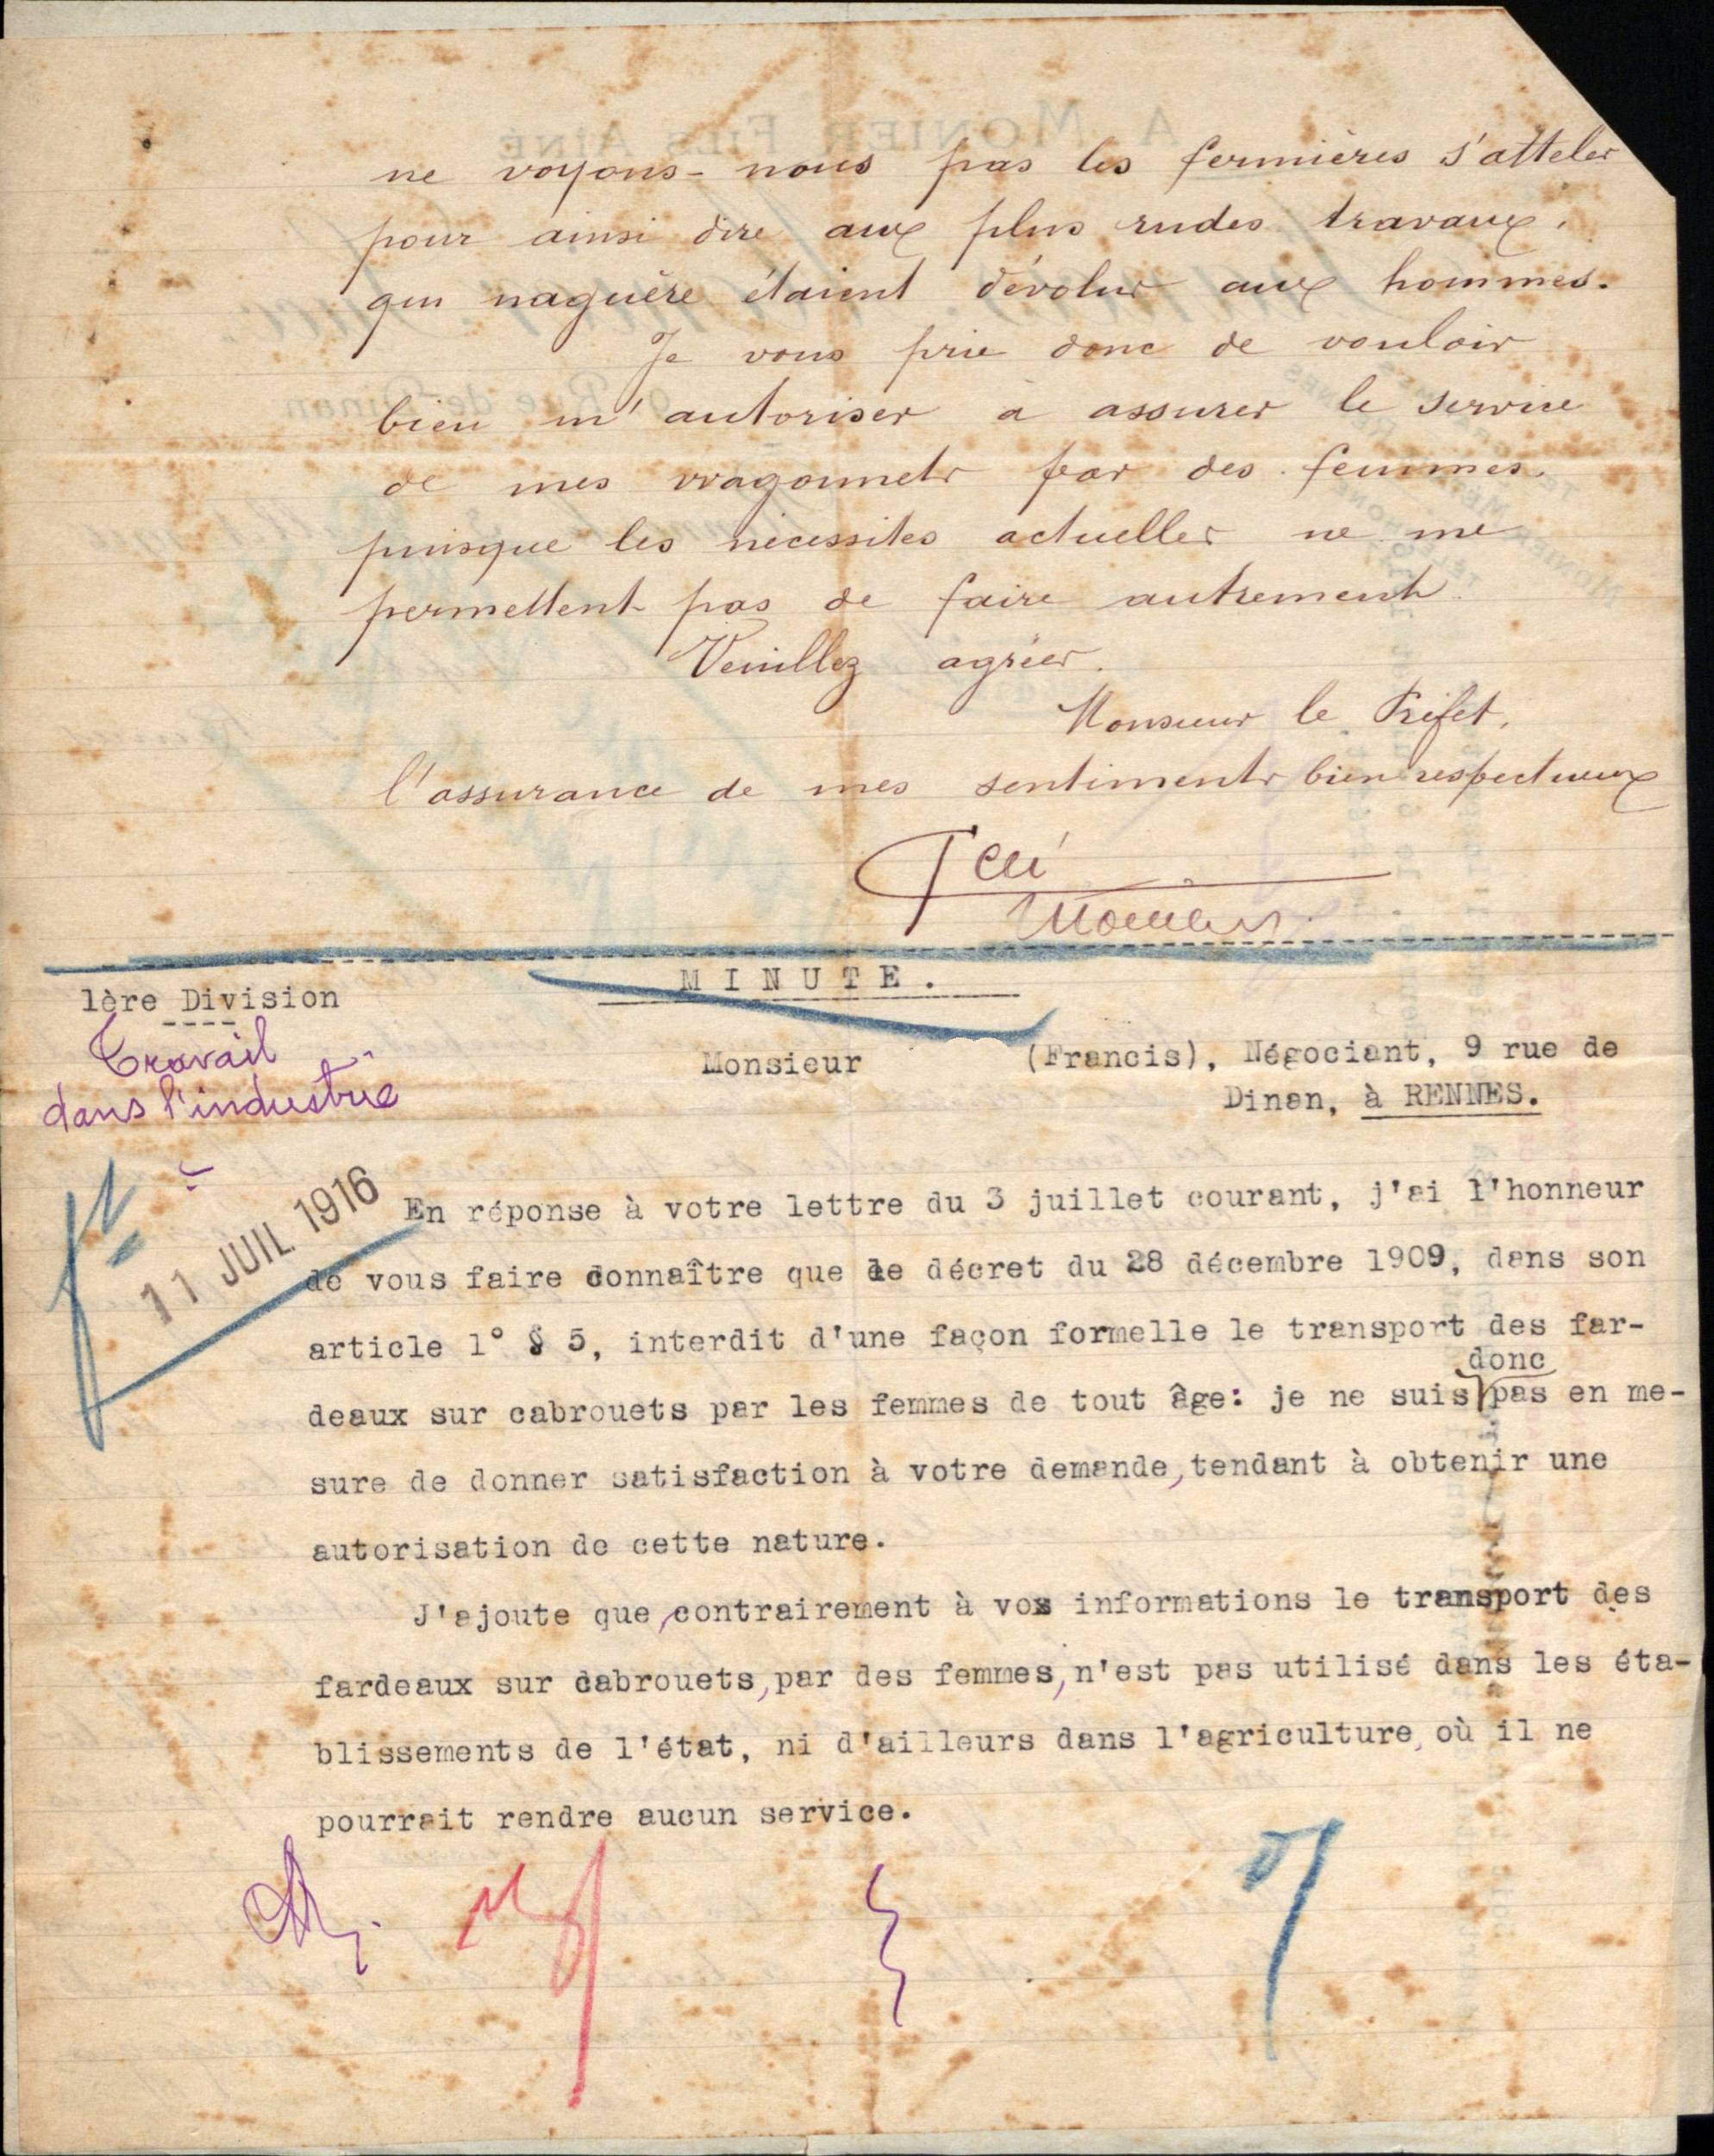 ne voyons-nous pas les fermières s'atteler
pour ainsi dire aux plus rudes travaux.
qui naguère étaient dévolus aux hommes.
Je vous prie donc de vouloir
bien m'autoriser a assurer le service
de mes wagonnets par des femmes.
puisque les nécessités actuelles ne me
permettent pas de faire autrement.
Veuillez agréer.
Monsieur le Préfet,
l'assurance de mes sentiments bien respectueux
MINUTE.
1ère Division
Travail
dans l'industrie
Monsieur (Francis), Négociant, 9 rue de
Dinan, à RENNES.
11 JUIL 1916
En réponse à votre lettre du 3 juillet courant, j'ai l'honneur
de vous faire connaître que le décret du 28 décembre 1909, dans son
article 1° § 5, interdit d'une façon formelle le transport des far-
donc
deaux sur cabrouets par les femmes de tout âge: je ne suis pas en me-
sure de donner satisfaction à votre demande, tendant à obtenir une
autorisation de cette nature.
J'ajoute que, contrairement à vos informations le transport des
fardeaux sur cabrouets, par des femmes, n'est pas utilisé dans les éta-
blissements de l'état, ni d'ailleurs dans l'agriculture, où il ne
pourrait rendre aucun service.